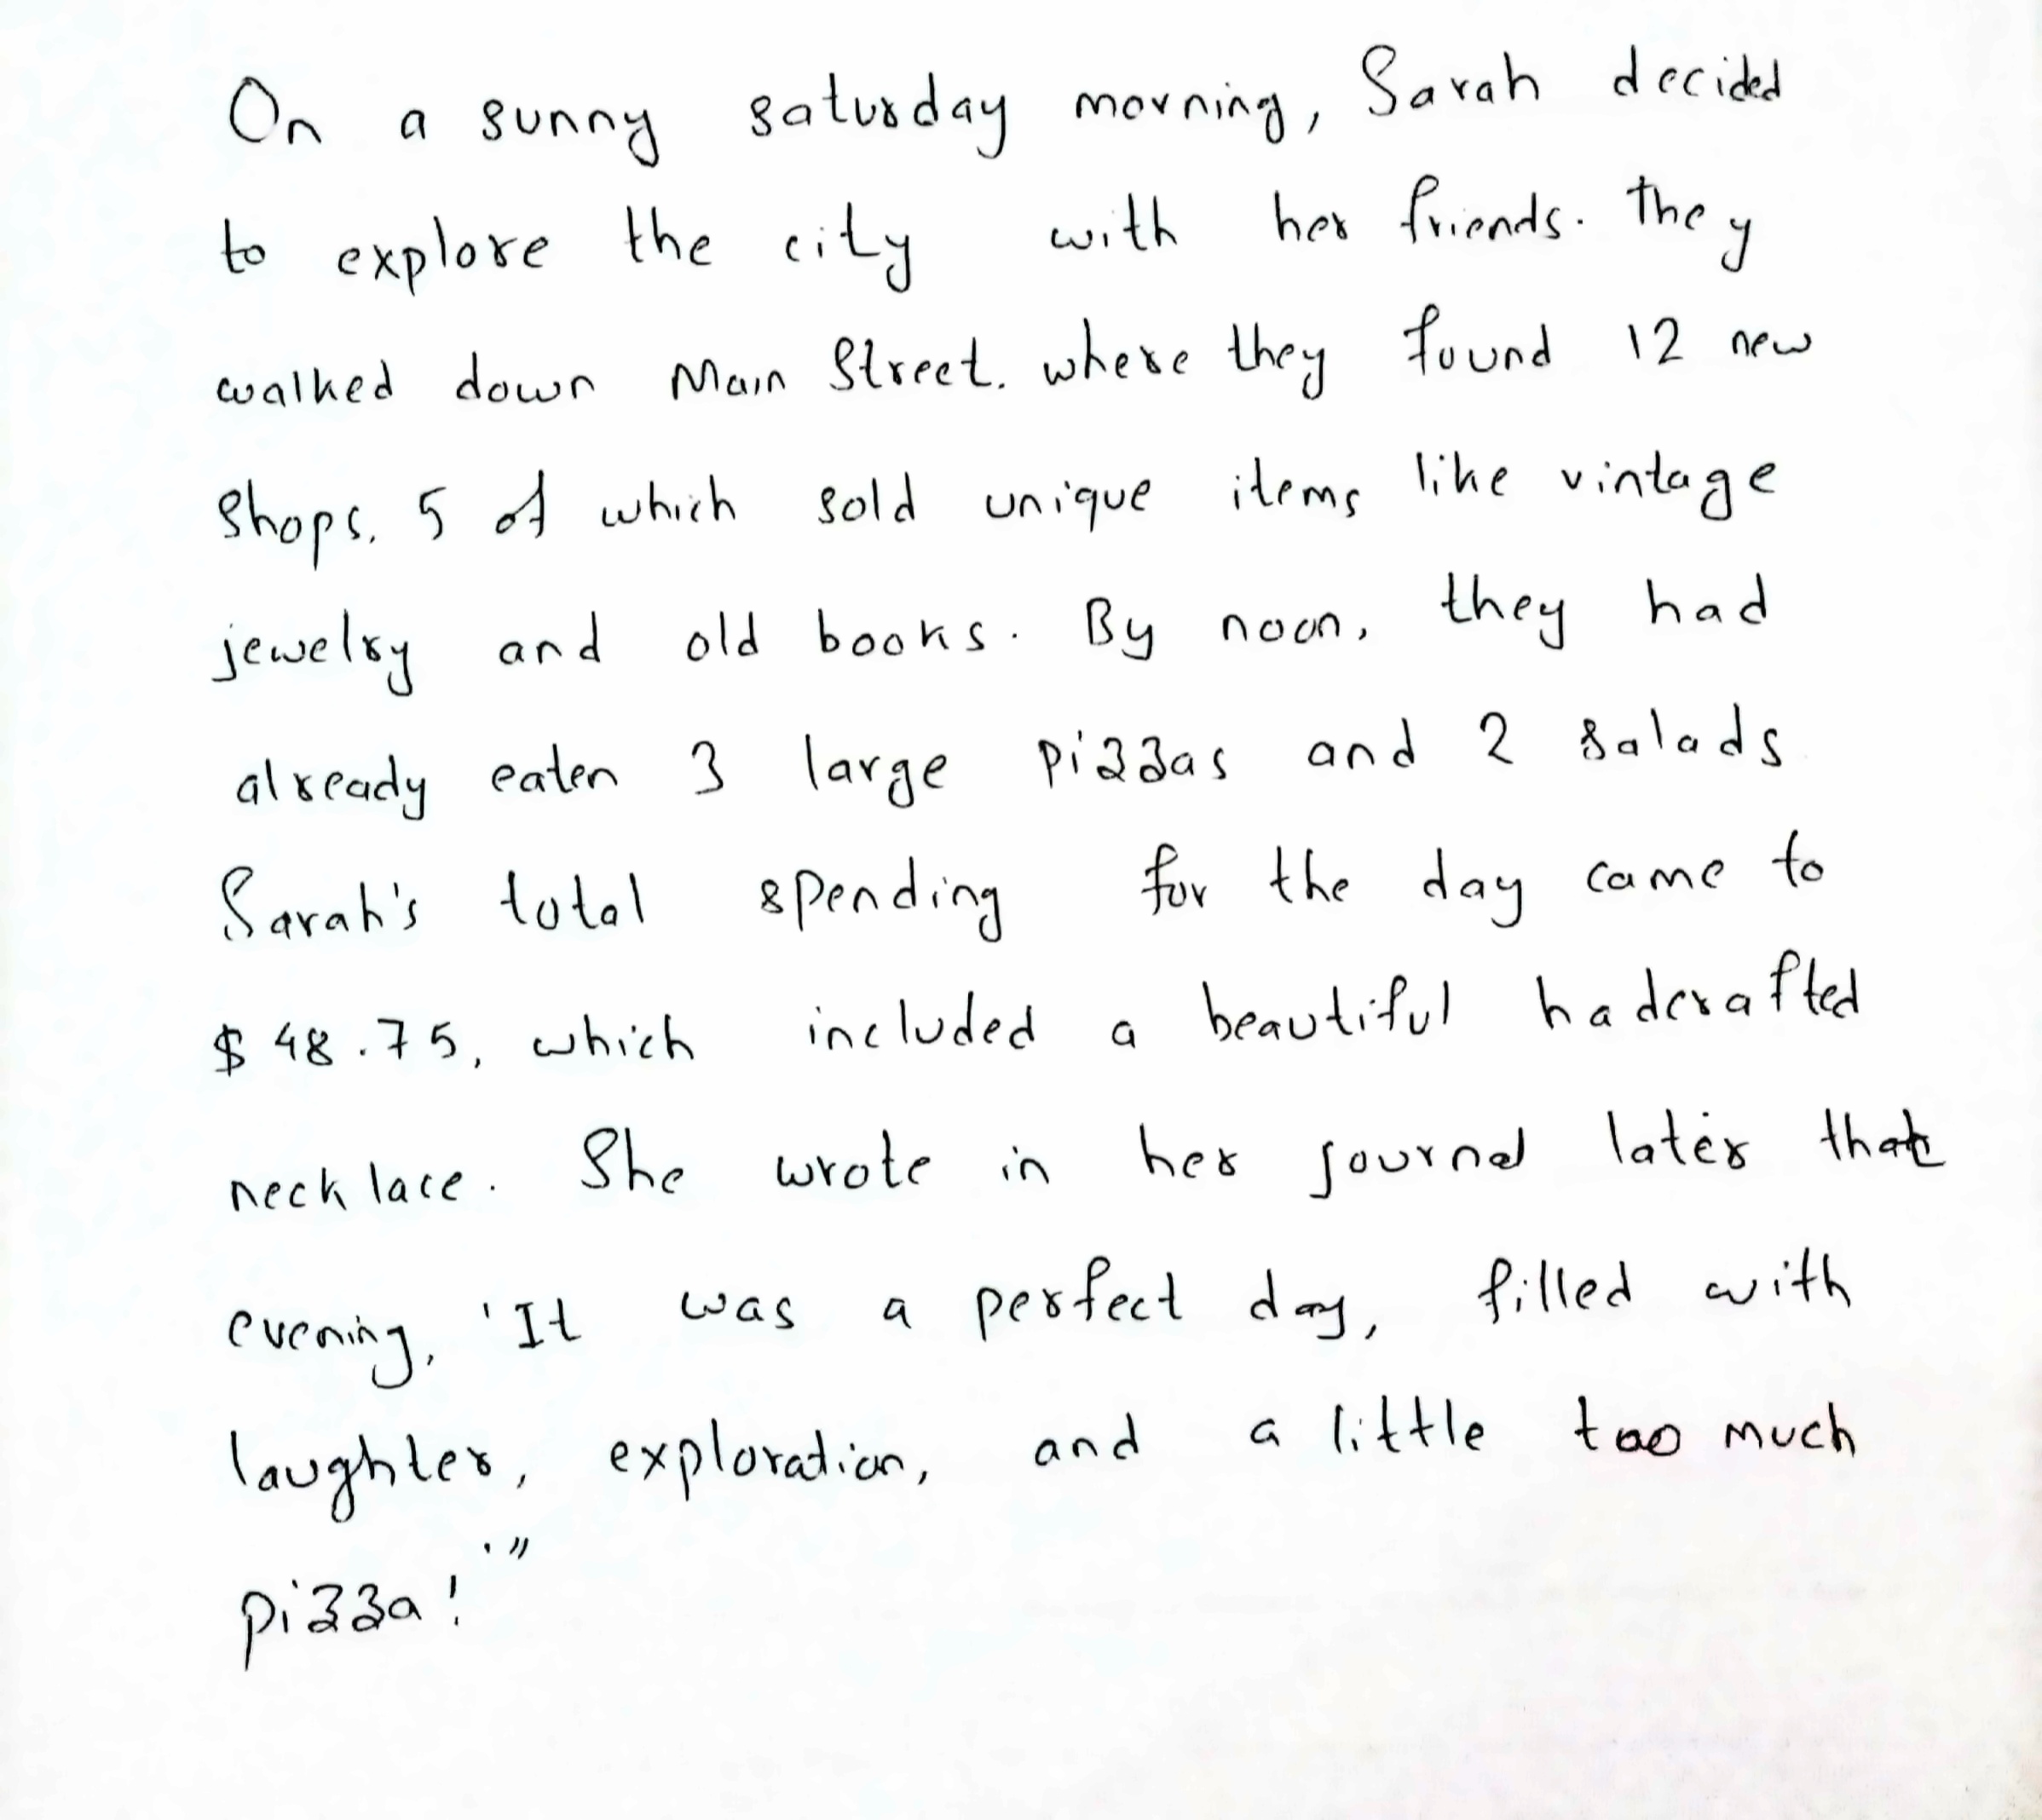 On a sunny saturday morning, Sarah decided
to explore the city with her friends. They
walked down Main Street. where they found 12 new
Shops, 5 of which sold unique items like vintage
jewelry and old books. By noon, they had
already eaten 3 large pizzas and 2 salads
Sarah's total spending for the day came to
$48.75, which included a beautiful hadcrafted
necklace. She wrote in her journal later that
evening, 'It was a perfect day, filled with
laughter, exploration, and a little too much
pizza!'"